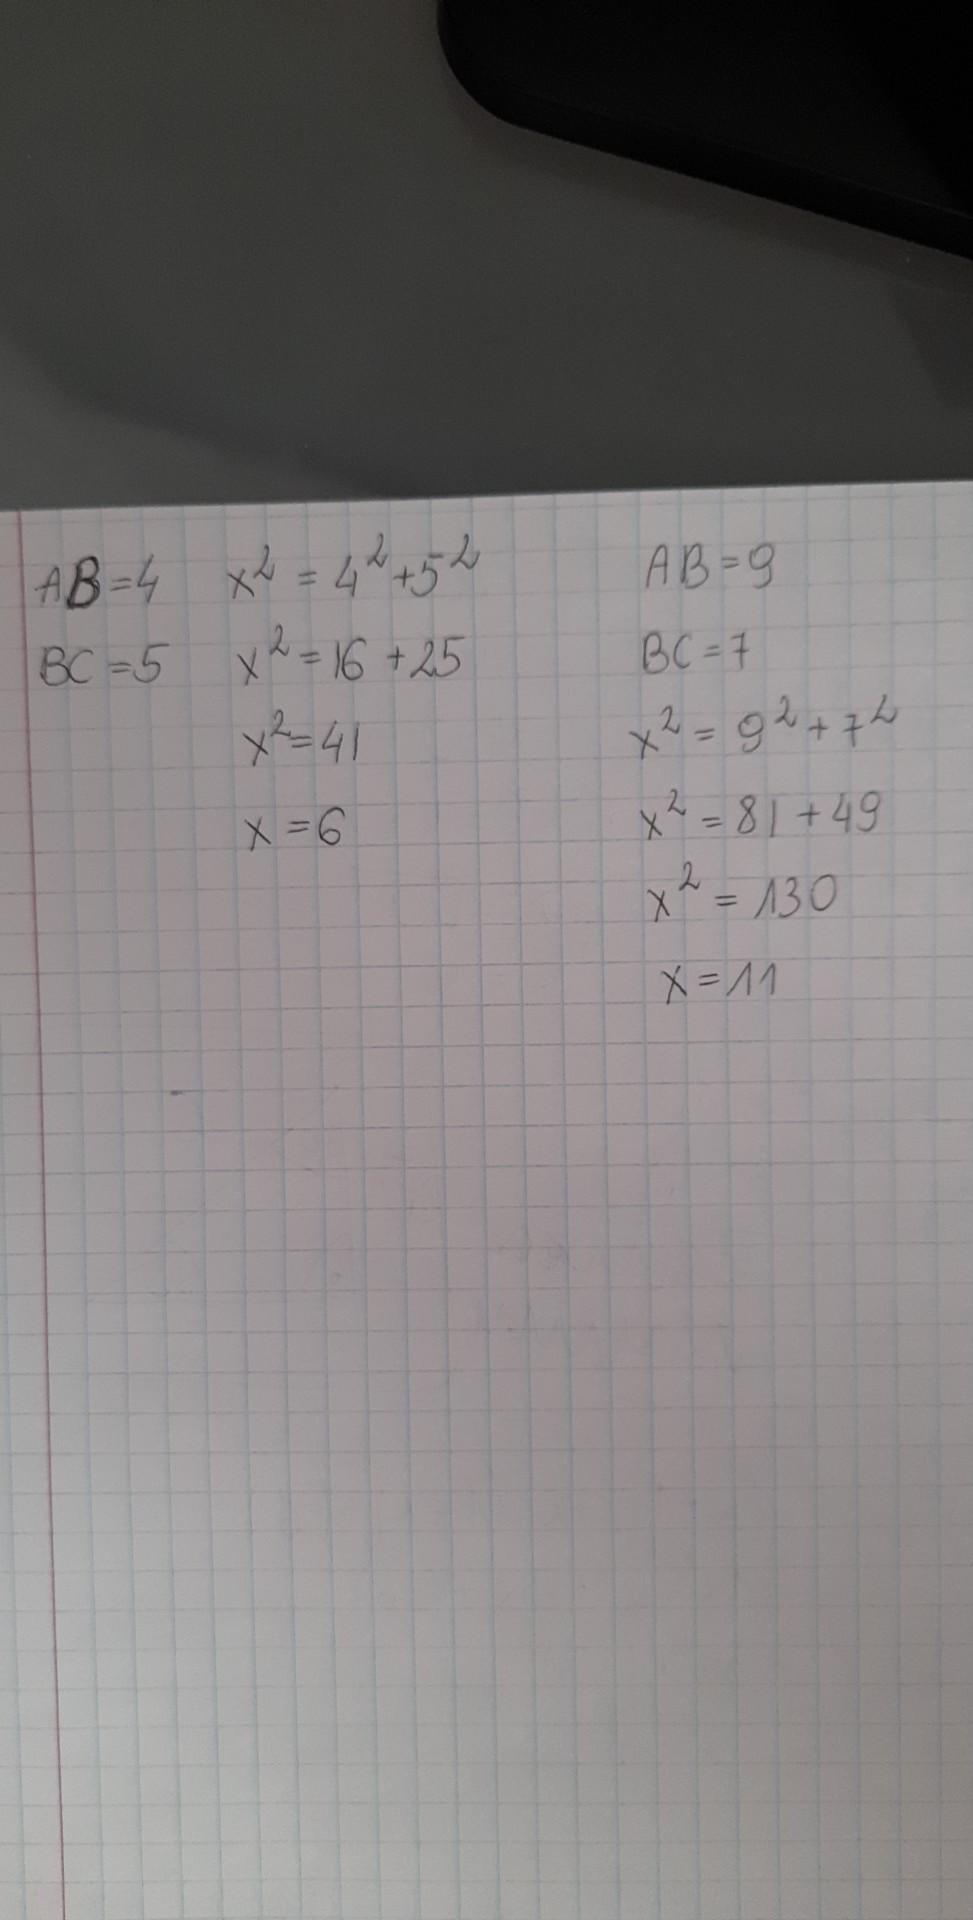 AB=4
BC=5
x²=4²+5²
x²=16+25
x²=41
x=6
AB=9
BC=7
x²=9²+7²
x²=81+49
x²=130
x=11